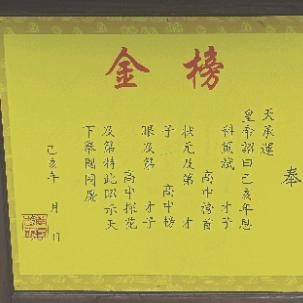 金榜
奉
天承運
皇帝詔曰己亥年恩
科殿試 才子
高中榜首
狀元及第 才
子 高中榜
眼及第 才子
高中探花
及第特此昭示天
下舉國同慶
己亥年 月 日